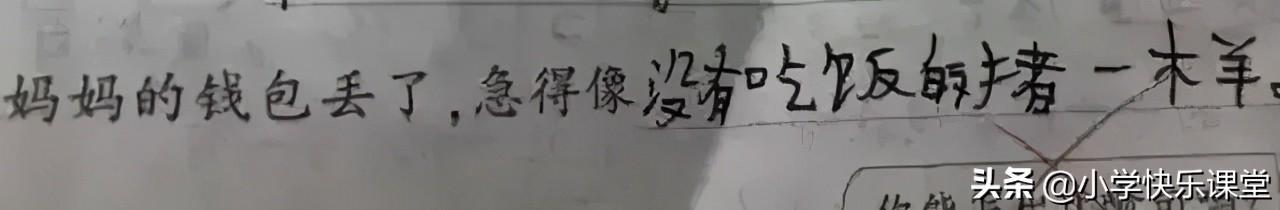 妈妈的钱包丢了,急得像没有吃饭的猪一样。
头条 @小学快乐课堂